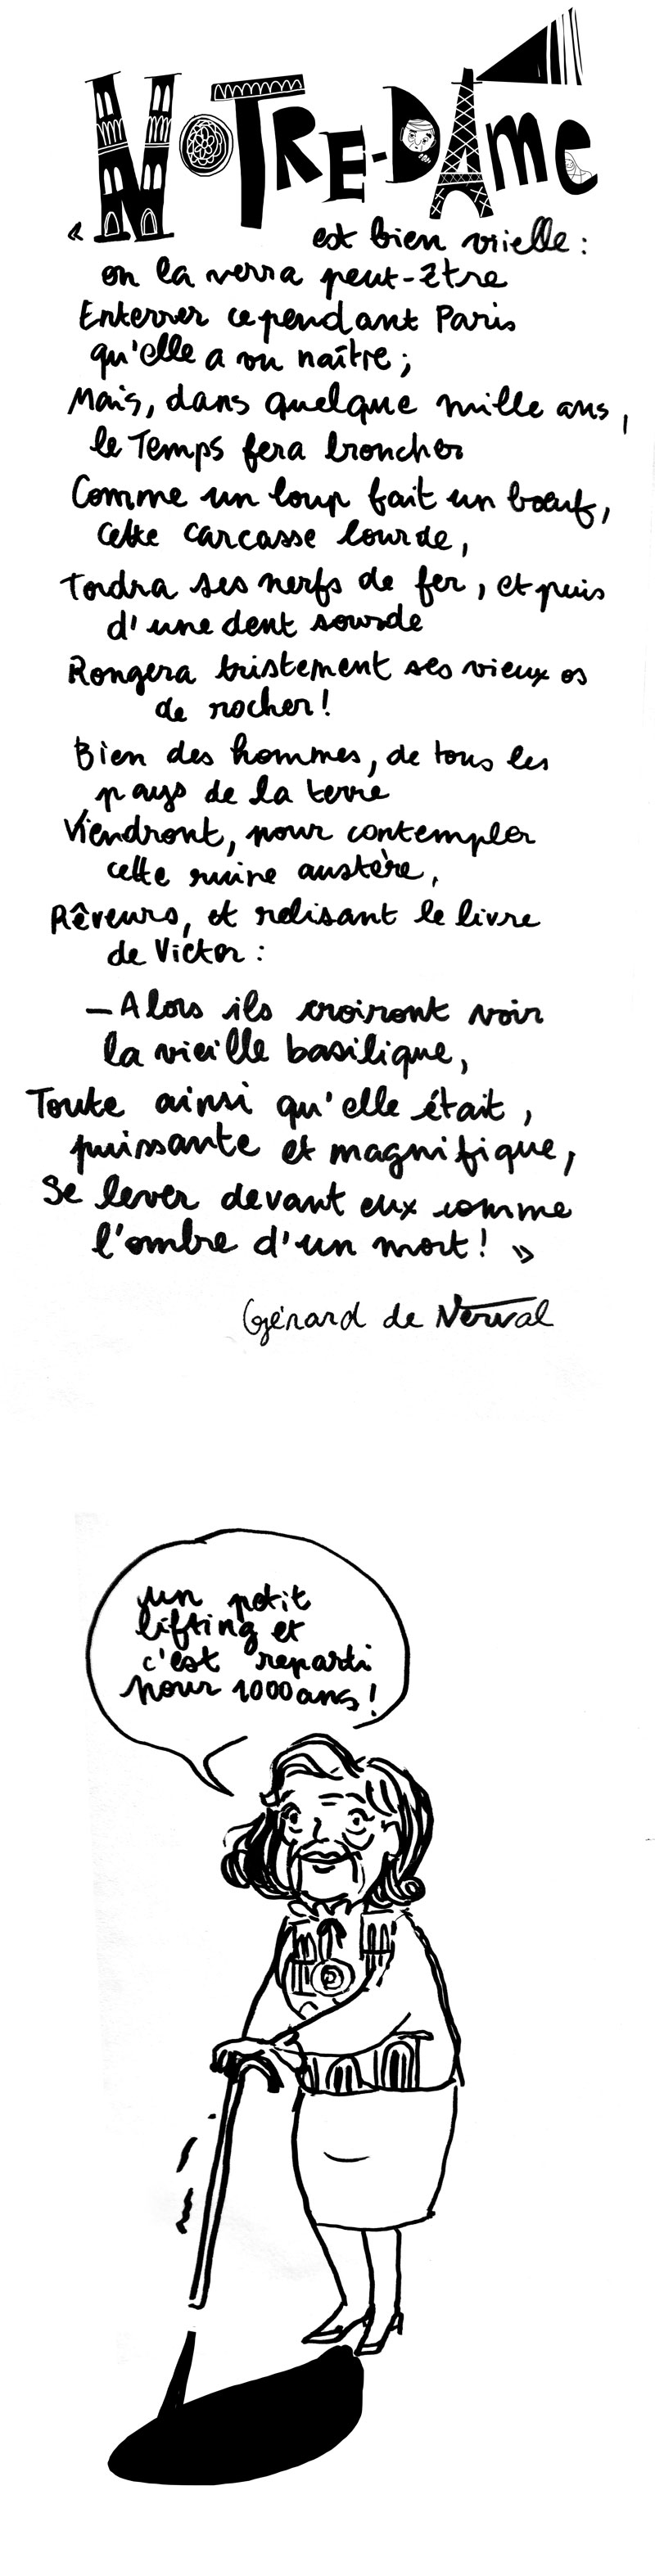 NOTRE-DAME
« est bien vieille :
on la verra peut-être
Enterrer cependant Paris
qu'elle a vu naître ;
Mais, dans quelque mille ans,
le Temps fera broncher
Comme un loup fait un bœuf,
cette carcasse lourde,
Tordra ses nerfs de fer, et puis
d'une dent sourde
Rongera tristement ses vieux os
de rocher !
Bien des hommes, de tous les
pays de la terre
Viendront, pour contempler
cette ruine austère,
Rêveurs, et relisant le livre
de Victor :
— Alors ils croiront voir
la vieille basilique,
Toute ainsi qu'elle était,
puissante et magnifique,
Se lever devant eux comme
l'ombre d'un mort ! »
Gérard de Nerval
un petit
lifting et
c'est reparti
pour 1000 ans !